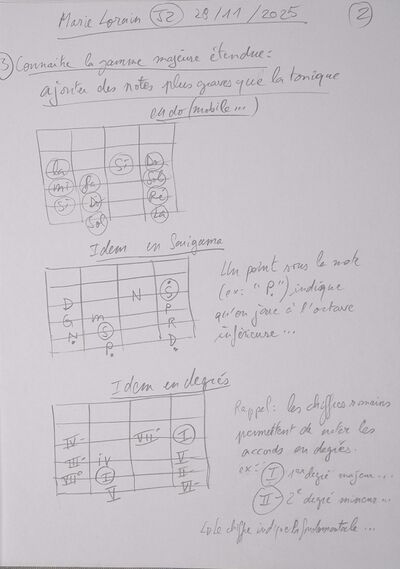 Marie Lorain S2 28/11/2025 2
3 Connaître la gamme majeure étendue:
ajouter des notes plus graves que la tonique
en do (mobile...)
La Si Do
mi fa Sol
Si Do Ré
Sol La
Idem en Sarigama
D N Ṡ
G m P
Ṇ S R
P. D.
Un point sous la note
(ex: "P.") indique
qu'on joue à l'octave
inférieure...
Idem en degrés
IV- VII° I
III- iv V
VII° I II-
V VI-
Rappel: les chiffres romains
permettent de noter les
accords en degrés.
ex: I 1er degré majeur...
II- 2e degré mineur...
Le chiffre indique la fondamentale...